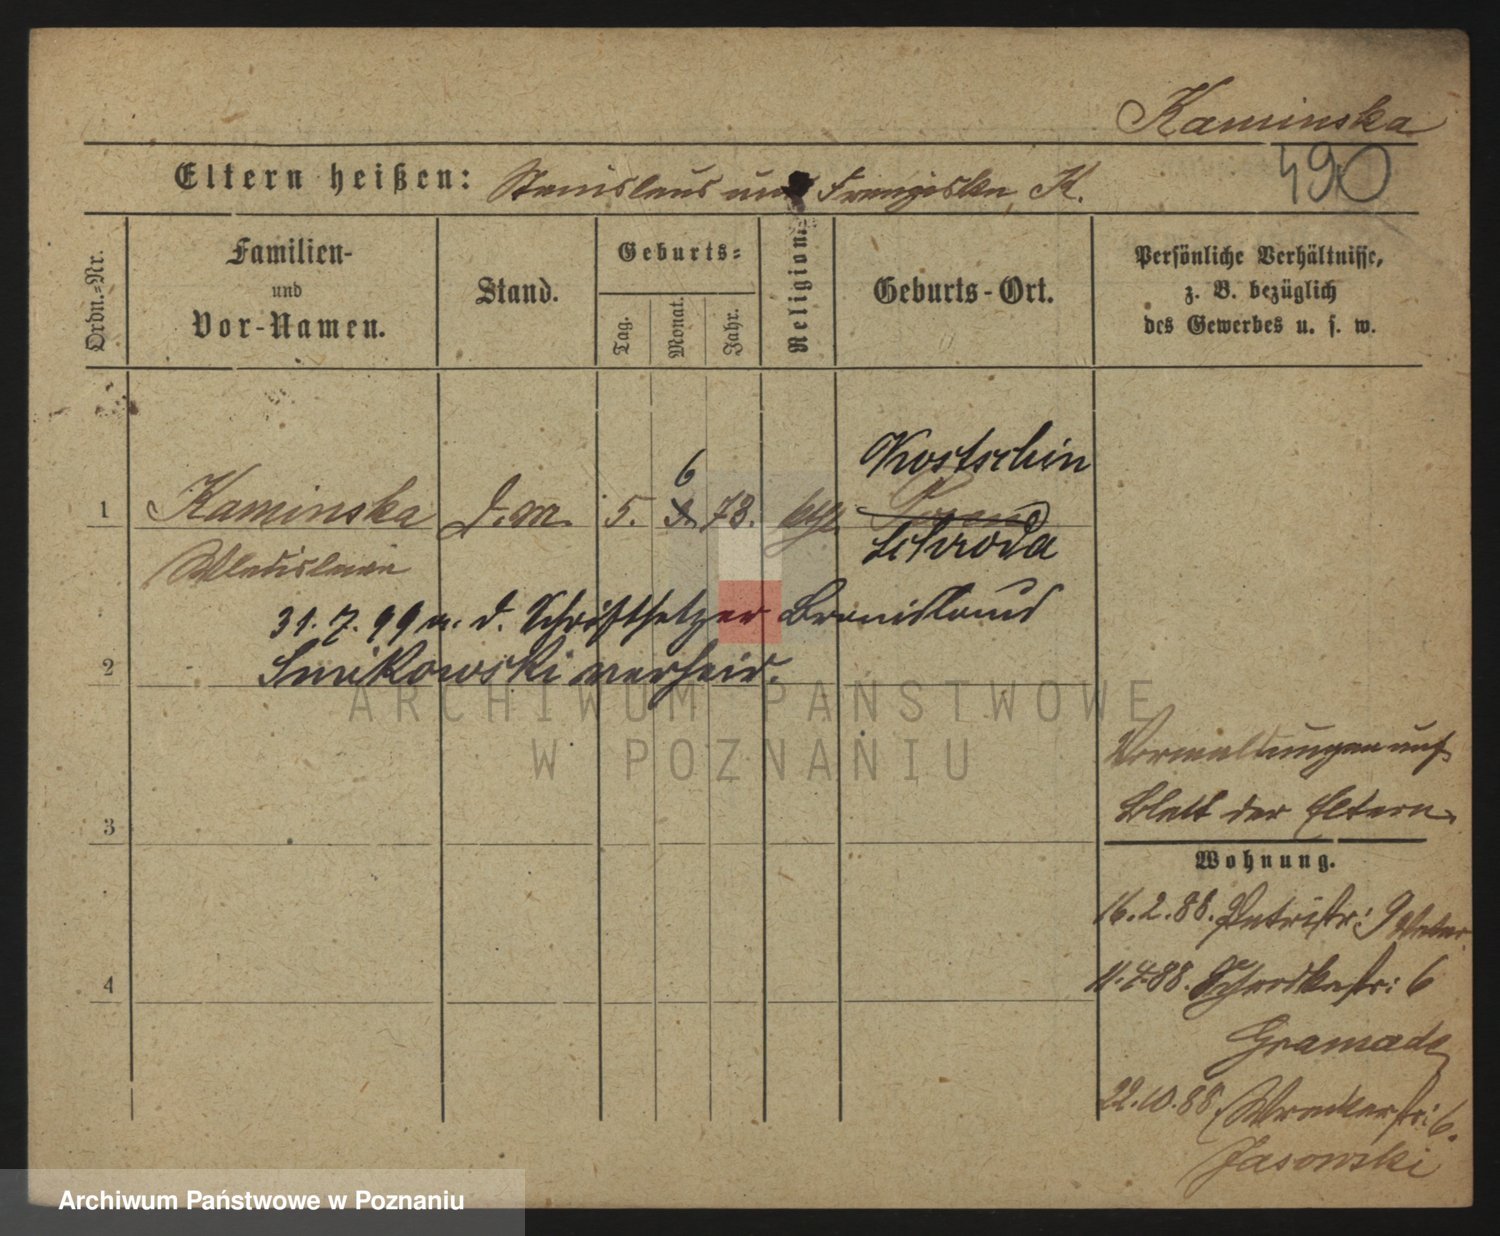 Kaminska
490
Eltern heißen: Stanislaus und Franziska K.
Ordn.-Nr.
Familien-
und
Vor-Namen.
Stand.
Geburts-
Tag.
Monat.
Jahr.
Religion.
Geburts-Ort.
Persönliche Verhältnisse,
z. B. bezüglich
des Gewerbes u. s. w.
Kostschin
6
1 Kaminska d. m. 5. 3. 73. kth. Posen
Schroda
Wladislawa
31. 7. 99 m. d. Schriftsetzer Bronislaus
2
verheir.
ARCHIWUM PAŃSTWOWE
W POZNANIU
auf
Blatt der Eltern.
3
Wohnung.
16. 2. 88. Petristr: 9
4
11. 4. 88. 6
Gramade
22. 10. 88. 6.
Jasowski
Archiwum Państwowe w Poznaniu